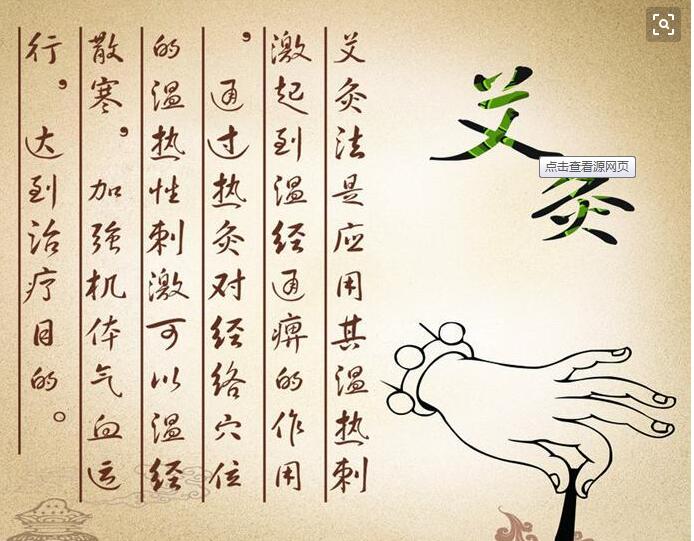 艾灸
点击查看源网页
艾灸法是应用其温热刺
激起到温经通痹的作用
，通过热灸对经络穴位
的温热性刺激可以温经
散寒，加强机体气血运
行，达到治疗目的。